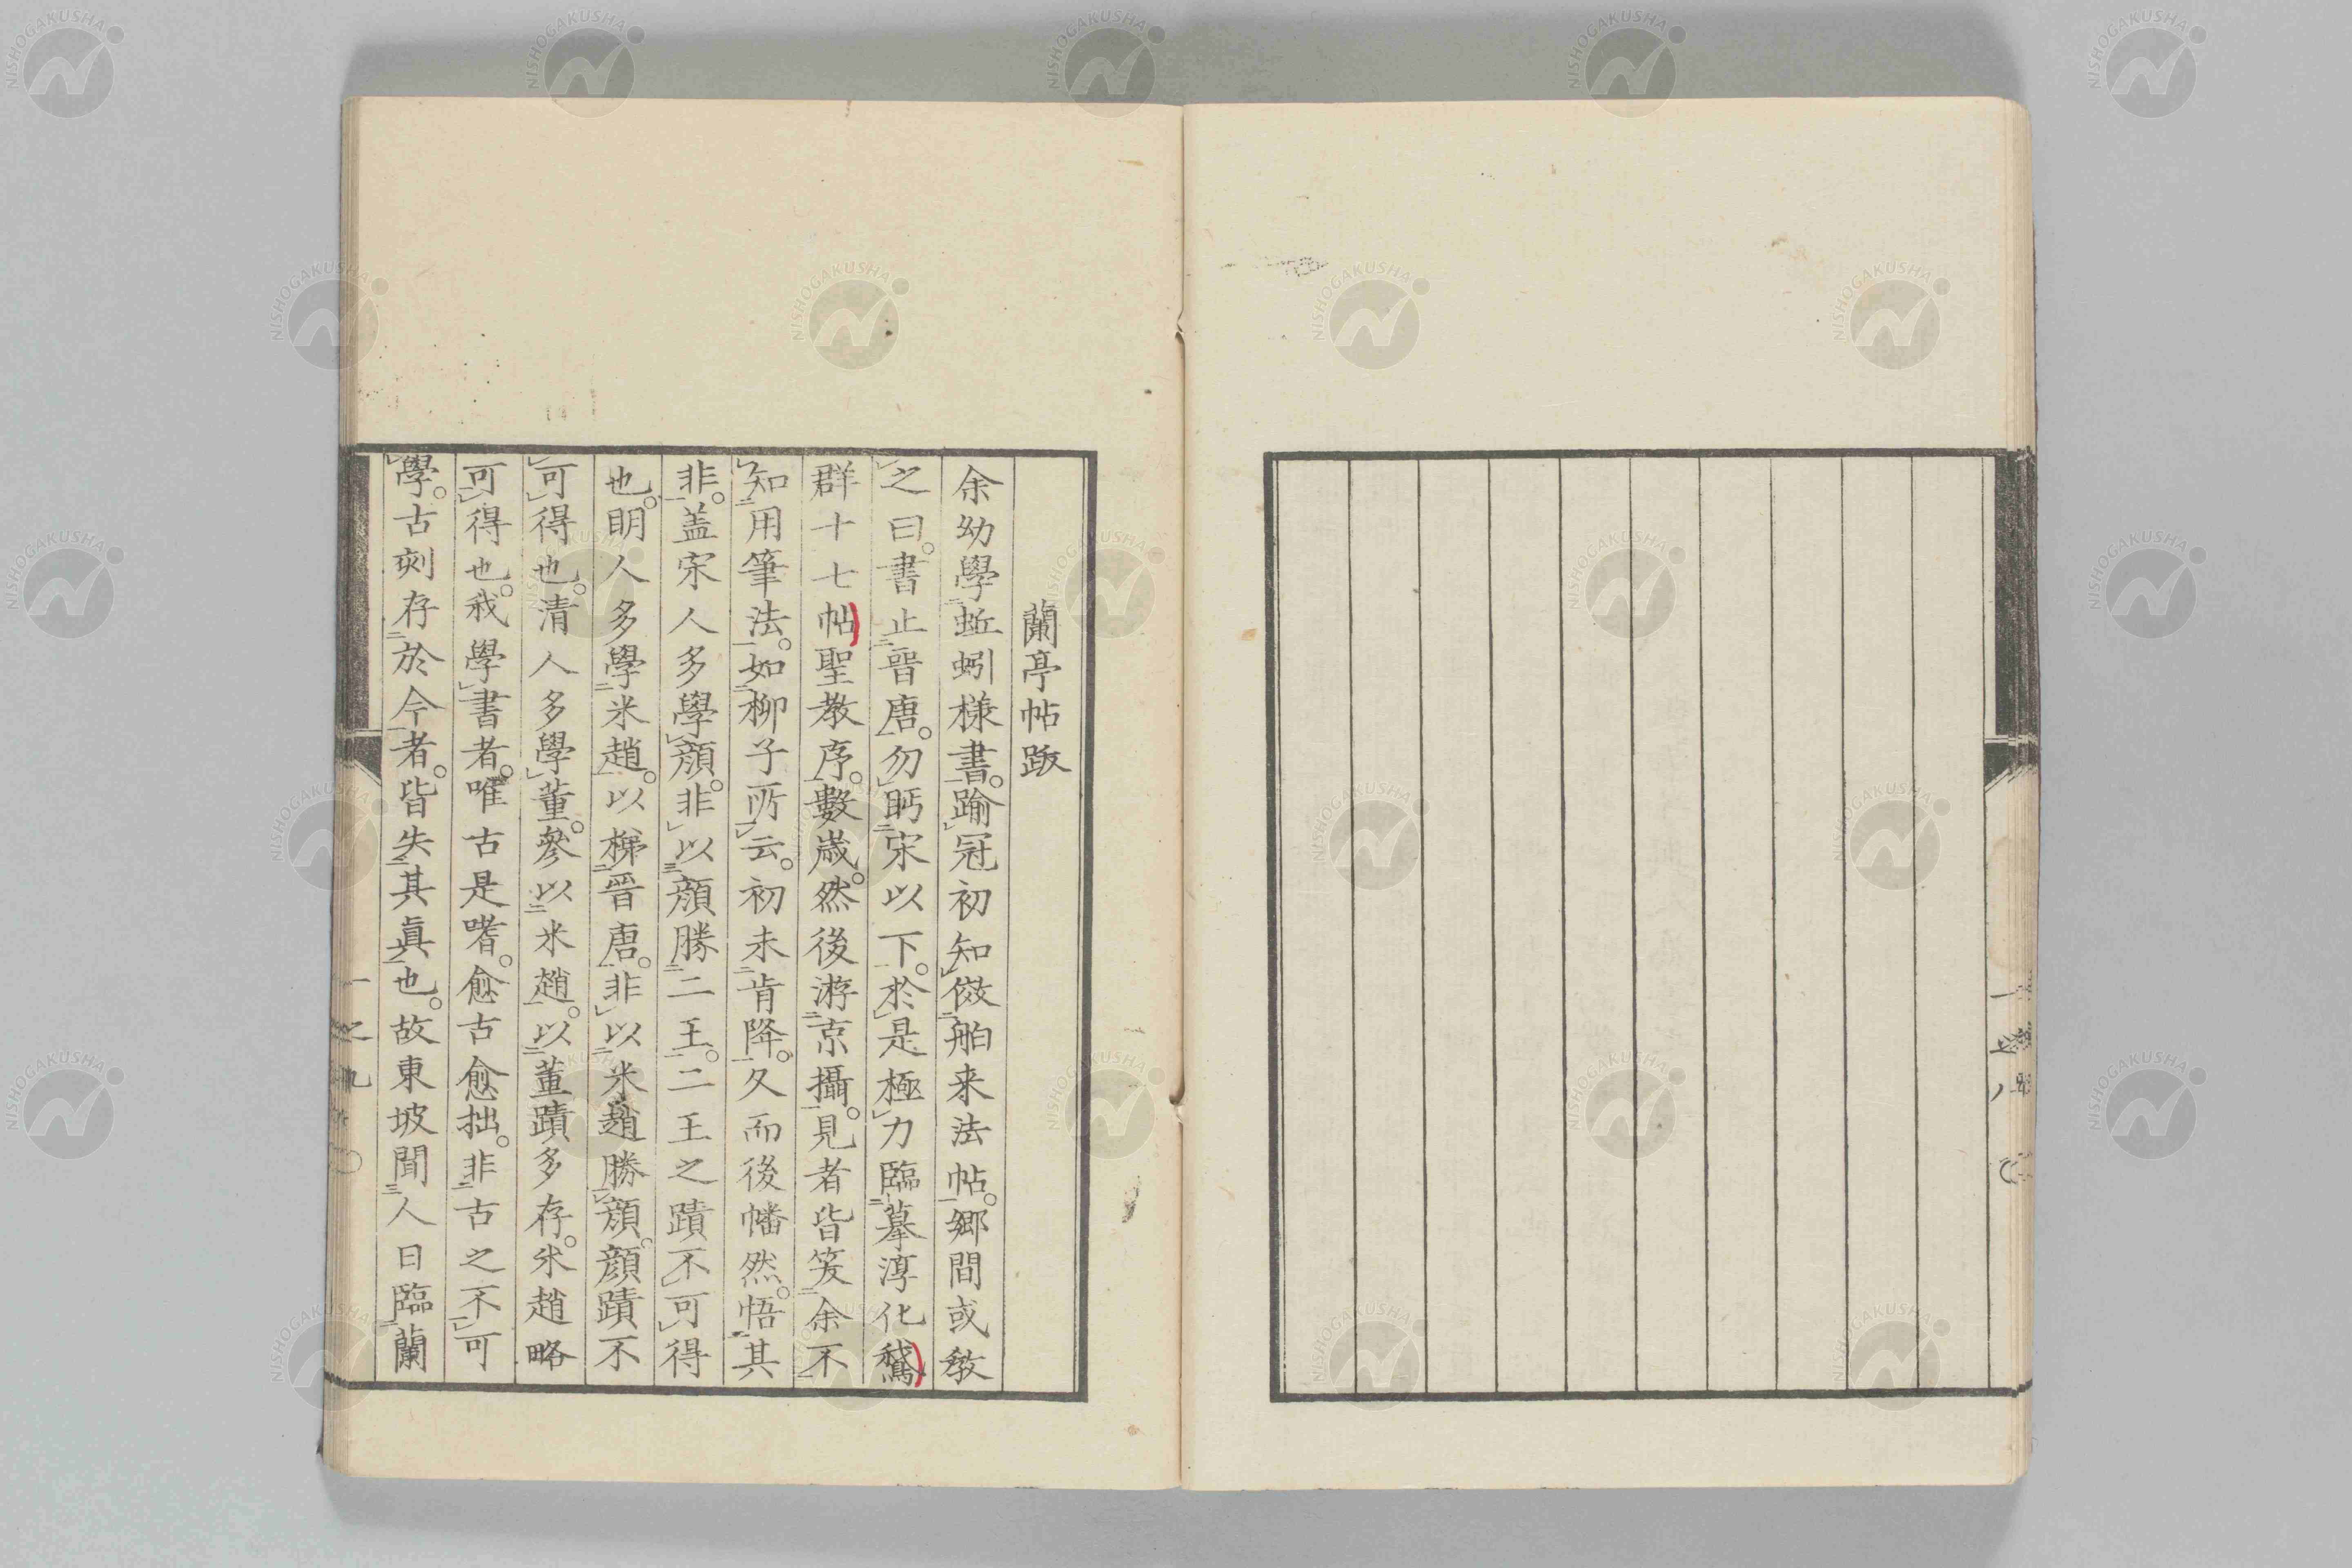 一之八
蘭亭帖跋
余幼學蚯蚓様書。踰冠初知倣舶来法帖。郷間或教
之曰。書止晉唐。勿眄宋以下。於是極力臨摹淳化鵞
群十七帖聖教序。數歳。然後游京攝。見者皆笑余不
知用筆法。如柳子所云。初未肯降。久而後幡然。悟其
非。盖宋人多學顔。非以顔勝二王。二王之蹟不可得
也。明人多學米趙。以梯晉唐。非以米趙勝顔。顔蹟不
可得也。清人多學董。參以米趙。以董蹟多存。米趙略
可得也。我學書者。唯古是嗜。愈古愈拙。非古之不可
學。古刻存於今者。皆失其眞也。故東坡聞人日臨蘭
一之九
NISHOGAKUSHA